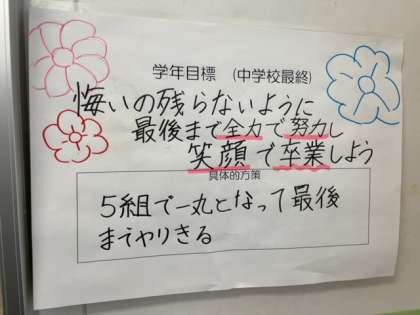 学年目標 (中学校最終)
悔いの残らないように
最後まで全力で努力し
笑顔で卒業しよう
具体的方策
5組で一丸となって最後
までやりきる